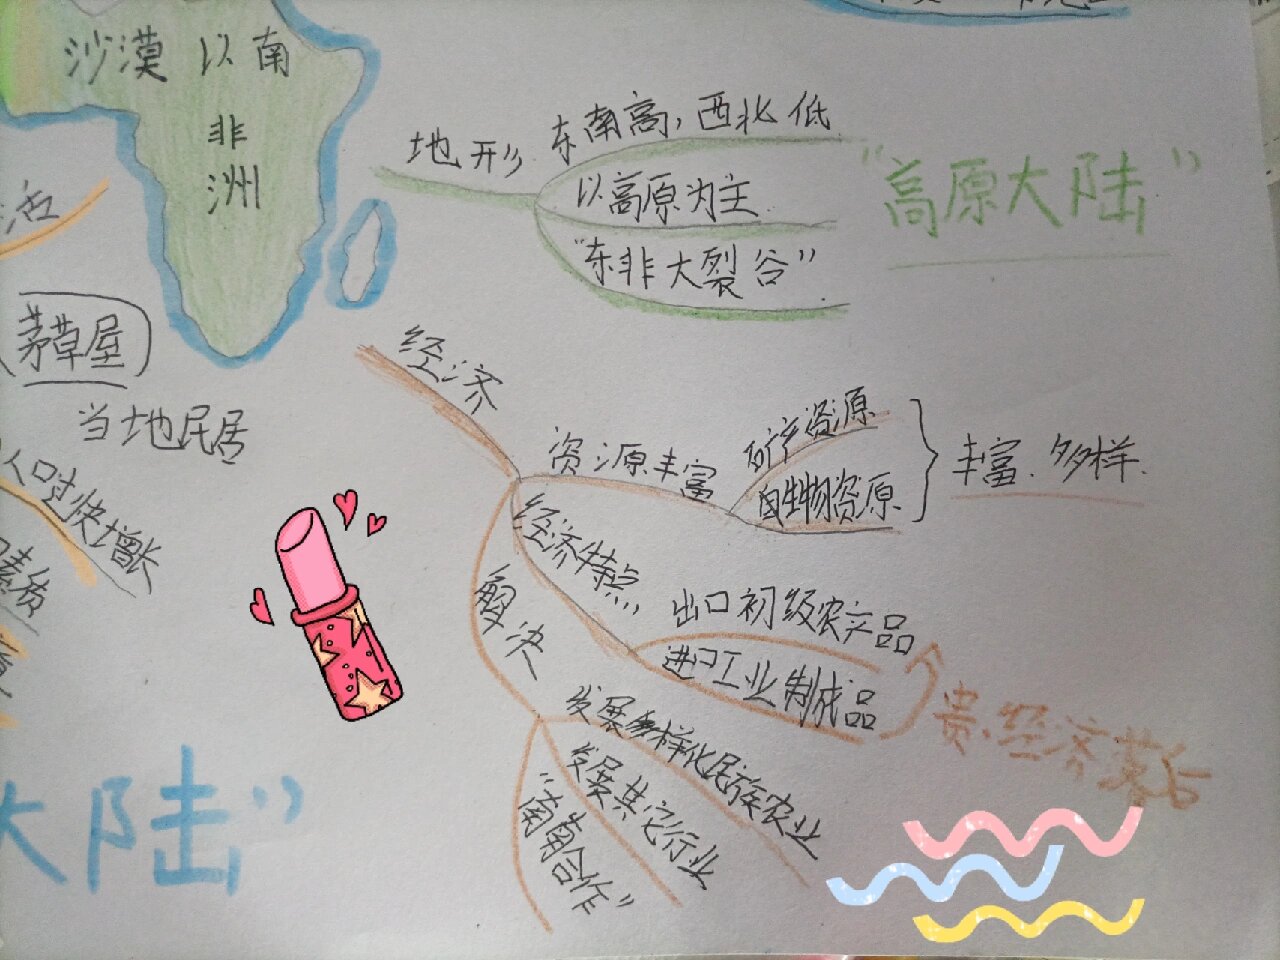 沙漠以南
非
洲
地形
东南高，西北低
以高原为主
"东非大裂谷"
"高原大陆"
茅草屋
当地民居
人口过快增长
素质
大陆"
经济
资源丰富
矿产资源
自生物资源
丰富.多样.
经济特点
出口初级农产品
进口工业制成品
贵.经济落后
解决
发展多样化民族农业
发展其它行业
"南南合作"